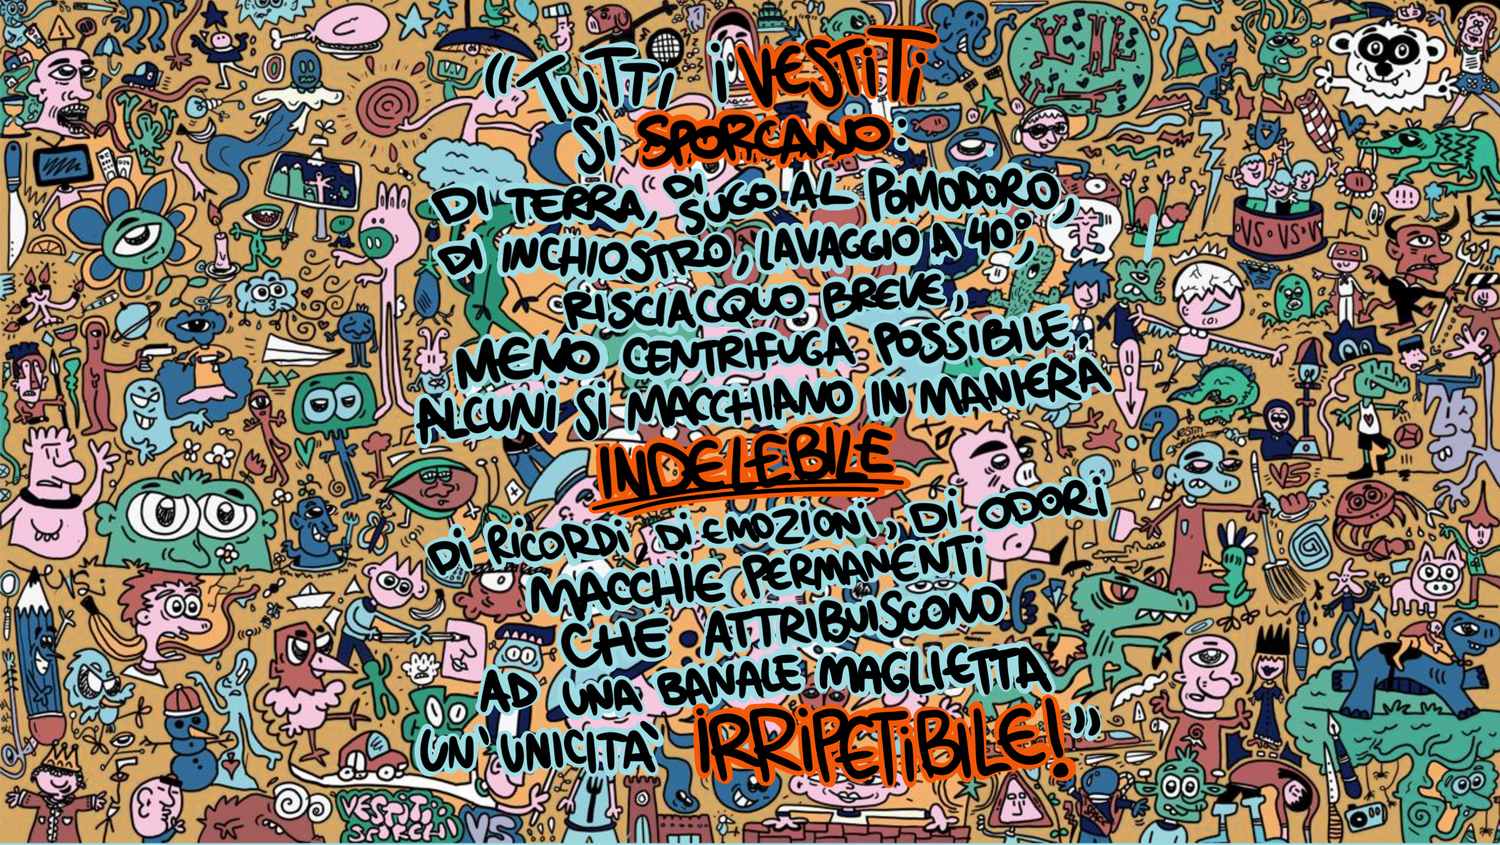 “TUTTI i VESTiTi
Si SPORCANO:
Di TERRA, Di SUGO AL POMODORO,
Di INCHIOSTRO, LAVAGGIO A 40°,
RISCIACQUO BREVE,
MENO CENTRIFUGA POSSIBILE.
ALCUNI SI MACCHIANO IN MANIERA
INDELEBILE
Di RiCORDi, Di EMOZIONi, Di ODORi
MACCHIE PERMANENTi
CHE ATTRIBUISCONO
AD UNA BANALE MAGLIETTA
UN'UNICITA' iRRiPETiBiLE!”
VS • VS • V
VESTITI
SPORCHI
VS
VESTiTi
SPORCHi
VS